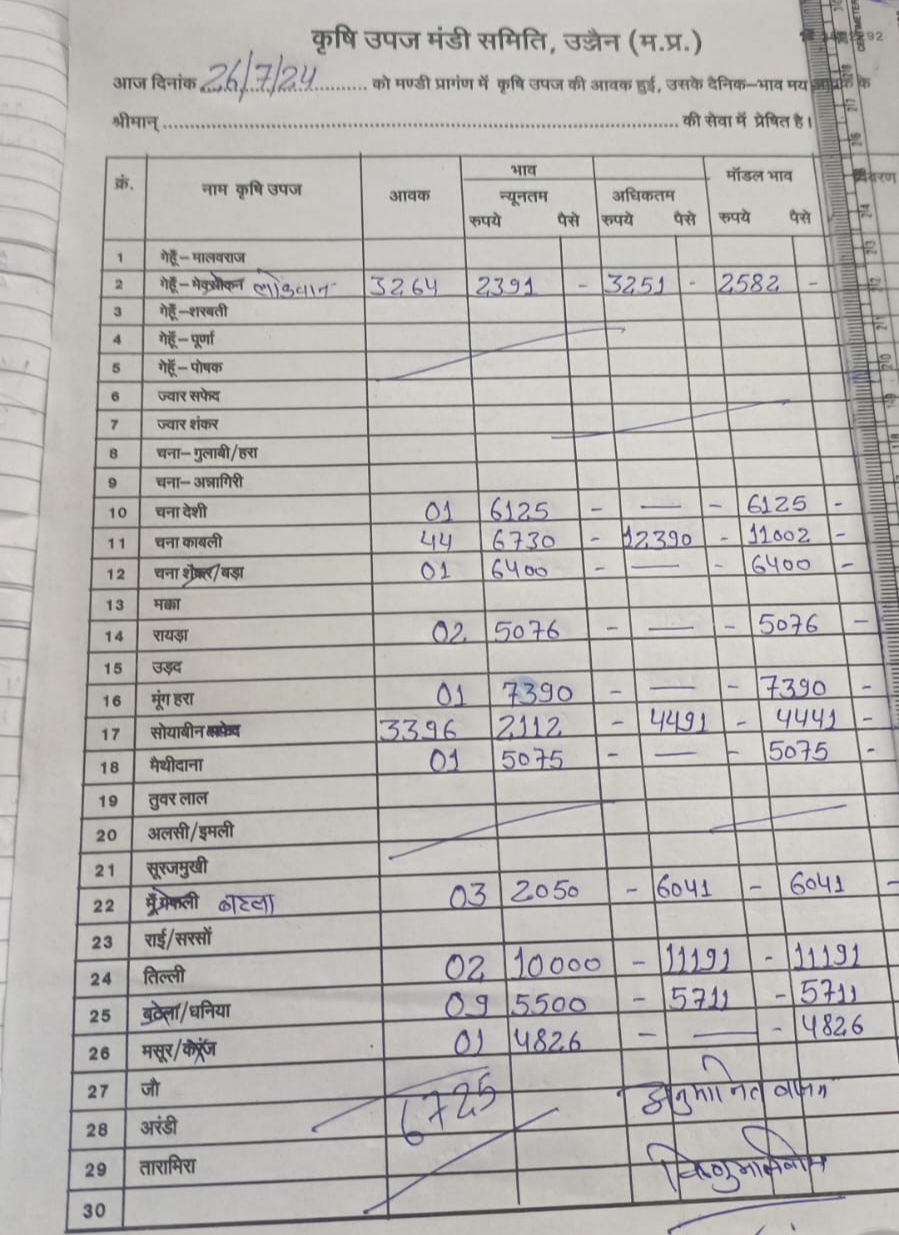 कृषि उपज मंडी समिति, उज्जैन (म.प्र.)
आज दिनांक 26/7/24 को मण्डी प्रागंण में कृषि उपज की आवक हुई, उसके दैनिक-भाव मय के
श्रीमान् की सेवा में प्रेषित है।
क्रं. नाम कृषि उपज आवक भाव मॉडल भाव
न्यूनतम अधिकतम
रुपये पैसे रुपये पैसे रुपये पैसे
1 गेहूँ-मालवराज
2 गेहूँ- लोकवान 3264 2391 - 3251 - 2582 -
3 गेहूँ-शरबती
4 गेहूँ-पूर्णा
5 गेहूँ-पोषक
6 ज्वार सफेद
7 ज्वार शंकर
8 चना-गुलाबी/हरा
9 चना-अन्नागिरी
10 चना देशी 01 6125 - — - 6125 -
11 चना काबली 44 6730 - 12390 - 11002 -
12 चना शंकर/बड़ा 01 6400 - — - 6400 -
13 मक्का
14 रायड़ा 02 5076 - — - 5076 -
15 उड़द
16 मूंग हरा 01 7390 - — - 7390 -
17 सोयाबीन सफेद 3396 2112 - 4491 - 4441 -
18 मैथीदाना 01 5075 - — - 5075 -
19 तुवर लाल
20 अलसी/इमली
21 सूरजमुखी
22 बटला 03 2050 - 6041 - 6041 -
23 राई/सरसों
24 तिल्ली 02 10000 - 11191 - 11191
25 /धनिया 09 5500 - 5711 - 5711
26 मसूर/ 01 4826 - — - 4826
27 जौ 6725 अनुमानित वजन
28 अरंडी
29 तारामिरा
30